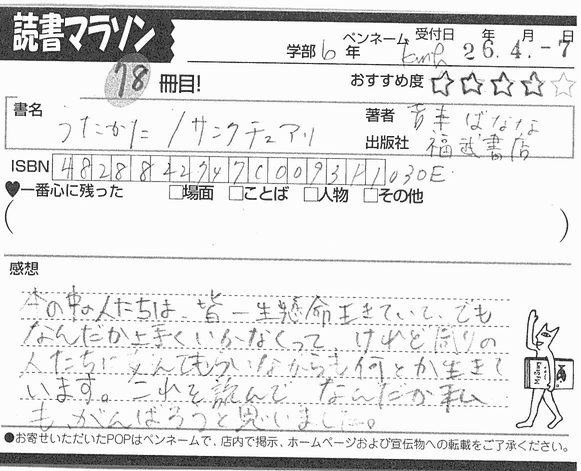 読書マラソン
学部6年 ペンネーム 受付日 年 月 日
26.4.-7
78冊目!
おすすめ度 ☆☆☆☆☆
書名 うたかた/サンクチュアリ
著者 吉本ばなな
出版社 福武書店
ISBN 4828822747C0093P1030E
♥一番心に残った □場面 □ことば □人物 □その他
( )
感想
本の中の人たちは、皆一生懸命生きていて、でも
なんだか上手くいかなくって、けれど周りの
人たちに支えてもらいながらも何とか生きて
います。これを読んで、なんだか私
も、がんばろうと思いました。
Mystery
●お寄せいただいたPOPはペンネームで、店内で掲示、ホームページおよび宣伝物への転載をご了承ください。